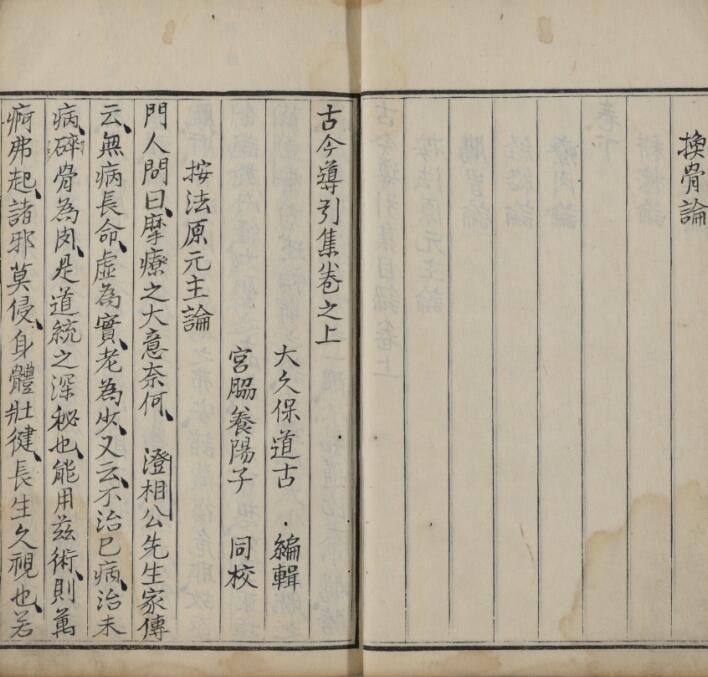 換骨論
古今導引集卷之上
大久保道古 編輯
宮脇養陽子 同校
按法原元主論
門人問曰摩療之大意奈何 澄相公先生家傳
云無病長命虛為實老為少又云不治已病治未
病碎骨為肉是道統之深秘也能用茲術則萬
痾弗起諸邪莫侵身體壯健長生久視也若